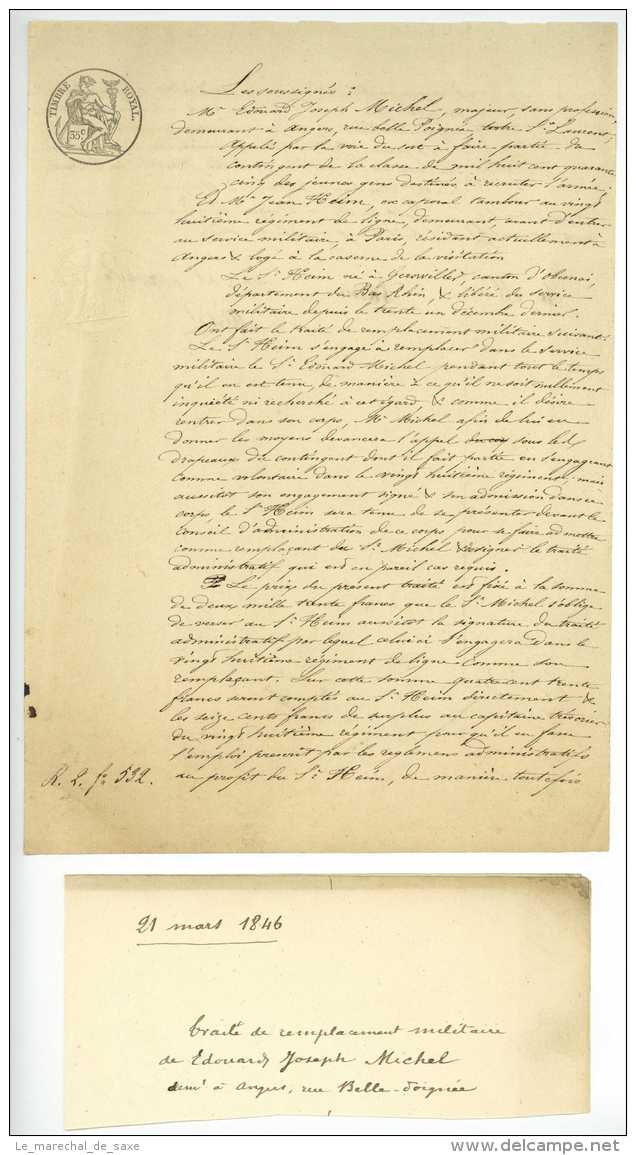 TIMBRE ROYAL.
35c
Les soussignés :
Mr Edouard Joseph Michel, majeur, sans profession
demeurant à Angers, rue belle Poignée, tertre St Laurent,
Appelé par la voie du sort à faire partie du
contingent de la classe de mil huit cent quarante
cinq des jeunes gens destinés à recruter l'armée.
Et Mr Jean Heim, ex caporal tambour au vingt
huitième régiment de ligne, demeurant, avant d'entrer
au service militaire, à Paris, résidant actuellement à
Angers & logé à la caserne de la visitation
Le Sr Heim né à canton d'Obernai,
département du Bas Rhin, & libéré du service
militaire depuis le trente un décembre dernier.
Ont fait le traité de remplacement militaire suivant :
Le Sr Heim s'engage à remplacer dans le service
militaire le Sr Edouard Michel pendant tout le temps
qu'il en est tenu, de manière à ce qu'il ne soit nullement
inquiété ni recherché à cet égard & comme il désire
rentrer dans son corps, Mr Michel afin de lui en
donner les moyens devancera l'appel sous les
drapeaux du contingent dont il fait partie en s'engageant
comme volontaire dans le vingt huitième régiment, mais
aussitôt son engagement signé & son admission dans ce
corps le Sr Heim sera tenu de se présenter devant le
conseil d'administration de ce corps pour se faire admettre
comme remplaçant du Sr Michel & signer le traité
administratif qui est en pareil cas requis.
Le prix du présent traité est fixé à la somme
de deux mille trente francs que le Sr Michel s'oblige
de verser au Sr Heim aussitôt la signature du traité
administratif par lequel celui ci s'engagera dans le
vingt huitième régiment de ligne comme son
remplaçant. Sur cette somme quatre cent trente
francs seront comptés au Sr Heim directement &
les seize cents francs de surplus au capitaine trésorier
du vingt huitième régiment pour qu'il en fasse
l'emploi prescrit par les reglemens administratifs
au profit du Sr Heim, de manière toutefois
R. L. fo 532.
21 mars 1846
traité de remplacement militaire
de Edouard Joseph Michel
demt à Angers, rue Belle-Poignée
Le_marechal_de_saxe
www.delcampe.net